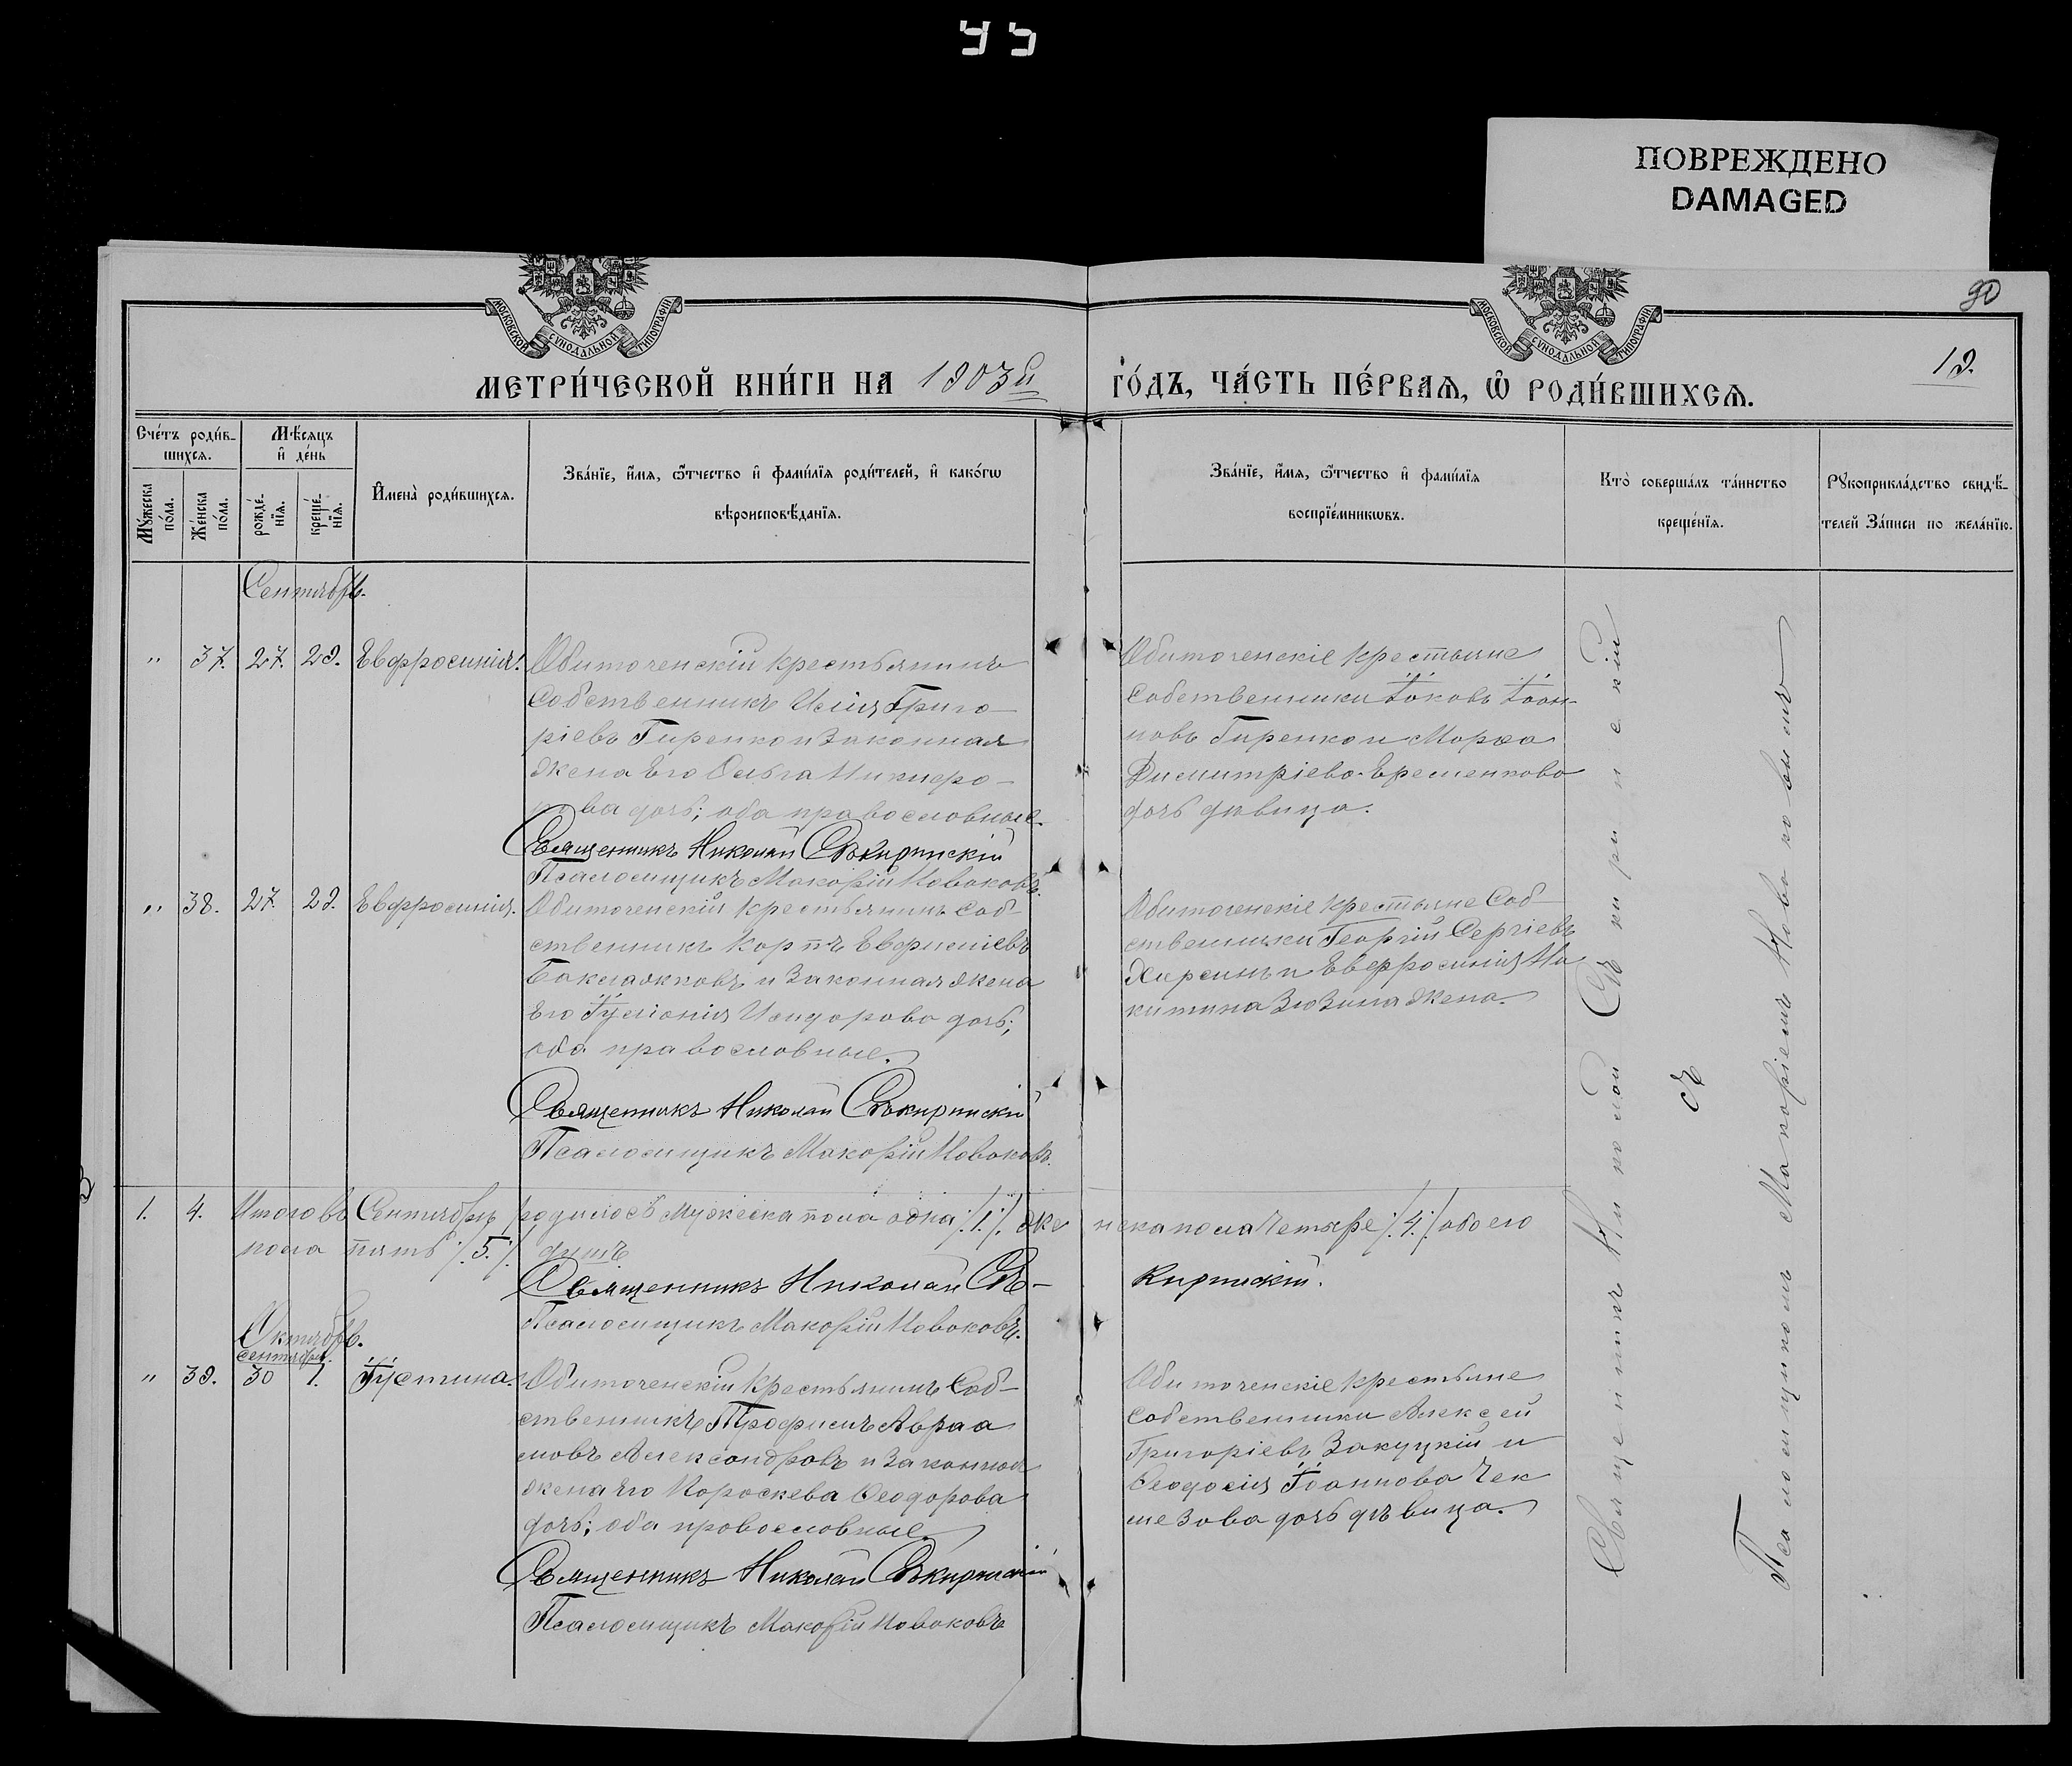 45
ПОВРЕЖДЕНО
DAMAGED
90
МОСКОВСКОЙ СѴНОДАЛЬНОЙ ТИПОГРАФІИ
МОСКОВСКОЙ СѴНОДАЛЬНОЙ ТИПОГРАФІИ
МЕТРИ́ЧЕСКОЙ КНИ́ГИ НА 1903й
ГО́ДЪ, ЧА́СТЬ ПЕ́РВАЯ, Ѽ РОДИ́ВШИХСЯ.
19.
Сче́тъ роди́в-
шихся.
Мѣсяцъ
и де́нь
Мꙋжеска
по́ла.
Же́нска
по́ла.
рожде́-
нїя.
креще́-
нїя.
Имена̀ роди́вшихся.
Зва́нїе, и́мя, ѻ́тчество и фами́лїя роди́телей, и како́гѡ
вѣроисповѣ́данїя.
Зва́нїе, и́мя, ѻ́тчество и фами́лїя
воспрїе́мникѡвъ.
Кто̀ соверша́лъ та́инство
креще́нїя.
Рꙋкоприкла́дство свидѣ́-
телей за́писи по жела́нїю.
Сентябрь.
" 37. 27. 29. Евфросинія.
Обиточенскій крестьянинъ
собственникъ Илія Григо-
ріевъ Гиренко и законная
жена его Ольга Никифо-
рова дочь; оба православные.
Священникъ Николай Сѣкиринскій
Псаломщикъ Макарій Новаковъ.
Обиточенскіе крестьяне
собственники Іаковъ Іоан-
новъ Гиренко и Марѳа
Димитріева Еременкова
дочь дѣвица.
" 38. 27. 29. Евфросинія.
Обиточенскій крестьянинъ соб-
ственникъ Карпъ Евфиміевъ
Баклажковъ и законная жена
его Іуліанія Исидорова дочь;
оба православные.
Священникъ Николай Сѣкиринскій
Псаломщикъ Макарій Новаковъ.
Обиточенскіе крестьяне соб-
ственники Георгій Сергіевъ
Хирсинъ и Евфросинія Ни
китина Зюзина жена.
1. 4. Итого въ Сентябрѣ родилось мужеска пола одна /.1./. же нска пола четыре /.4./. обоего
пола пять /.5./. душъ
Священникъ Николай Сѣ- киринскій.
Псаломщикъ Макарій Новаковъ.
Октябрь.
Сентября.
" 39. 30 1. Іустина.
Обиточенскій крестьянинъ соб-
ственникъ Трофимъ Авраа
мовъ Александровъ и законная
жена его Параскева Ѳеодорова
дочь; оба православные.
Священникъ Николай Сѣкиринскій
Псаломщикъ Макарій Новаковъ
Обиточенскіе крестьяне
собственники Алексей
Григоріевъ Закуцкій и
Ѳеодосія Іоаннова Чек
мезова дочь дѣвица.
Священникъ Николай Сѣкиринскій
съ
Псаломщикомъ Макаріемъ Новаковымъ